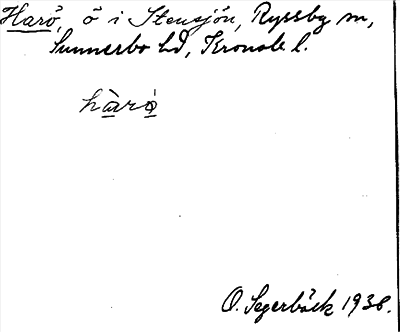 Harö, ö i Stensjön, Ryssby sn,
Sunnerbo hd, Kronob l.
hàrö̀
O. Segerbäck 1938.